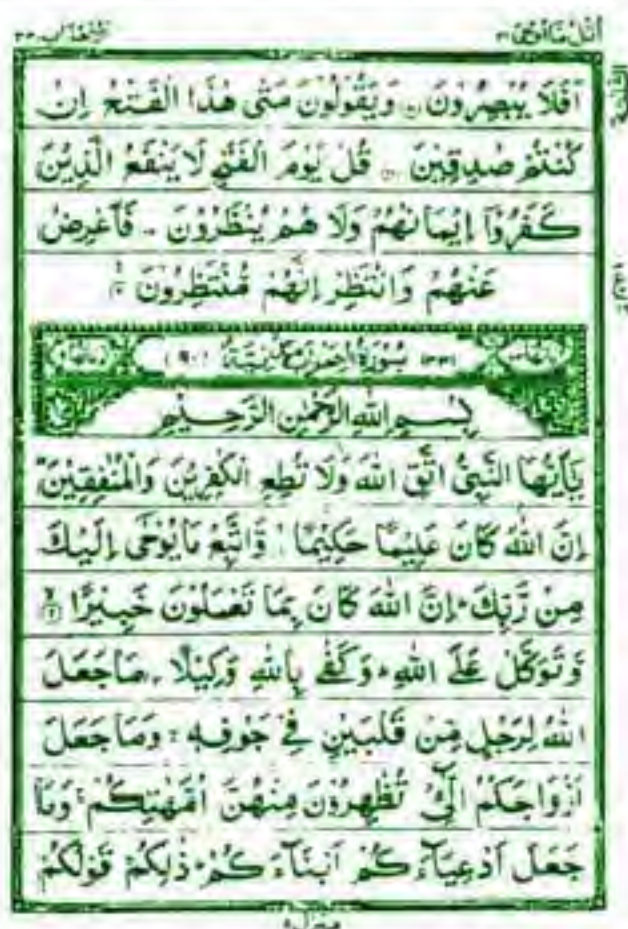 اُتْلُ مَآ اُوْحِیَ ٢١
الاحزاب ٣٣
اَفَلَا یُبْصِرُوْنَ وَیَقُوْلُوْنَ مَتٰی هٰذَا الْفَتْحُ اِنْ
كُنْتُمْ صٰدِقِیْنَ قُلْ یَوْمَ الْفَتْحِ لَا یَنْفَعُ الَّذِیْنَ
كَفَرُوْۤا اِیْمَانُهُمْ وَلَا هُمْ یُنْظَرُوْنَ فَاَعْرِضْ
عَنْهُمْ وَانْتَظِرْ اِنَّهُمْ مُّنْتَظِرُوْنَ
(٣٣) سُوْرَةُ الْاَحْزَابِ مَدَنِیَّةٌ (٩٠)
بِسْمِ اللّٰهِ الرَّحْمٰنِ الرَّحِیْمِ
یٰۤاَیُّهَا النَّبِیُّ اتَّقِ اللّٰهَ وَلَا تُطِعِ الْكٰفِرِیْنَ وَالْمُنٰفِقِیْنَ
اِنَّ اللّٰهَ كَانَ عَلِیْمًا حَكِیْمًا وَّاتَّبِعْ مَا یُوْحٰۤی اِلَیْكَ
مِنْ رَّبِّكَ اِنَّ اللّٰهَ كَانَ بِمَا تَعْمَلُوْنَ خَبِیْرًا
وَّتَوَكَّلْ عَلَی اللّٰهِ وَكَفٰی بِاللّٰهِ وَكِیْلًا مَا جَعَلَ
اللّٰهُ لِرَجُلٍ مِّنْ قَلْبَیْنِ فِیْ جَوْفِهٖ وَمَا جَعَلَ
اَزْوَاجَكُمُ الّٰٓـِٔیْ تُظٰهِرُوْنَ مِنْهُنَّ اُمَّهٰتِكُمْ وَمَا
جَعَلَ اَدْعِیَآءَكُمْ اَبْنَآءَكُمْ ذٰلِكُمْ قَوْلُكُمْ